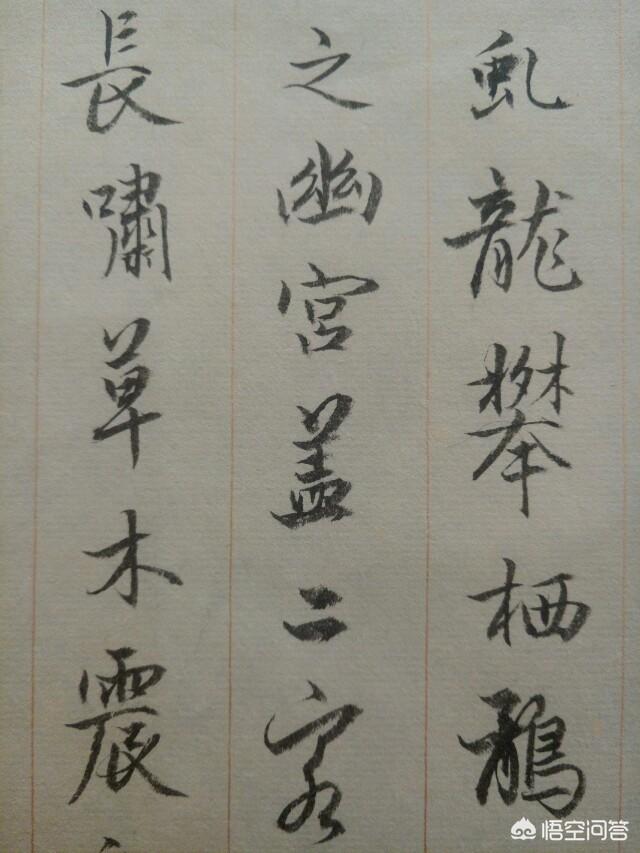 虬龍攀栖鶻
之幽宮蓋二客
長嘯草木震
悟空问答